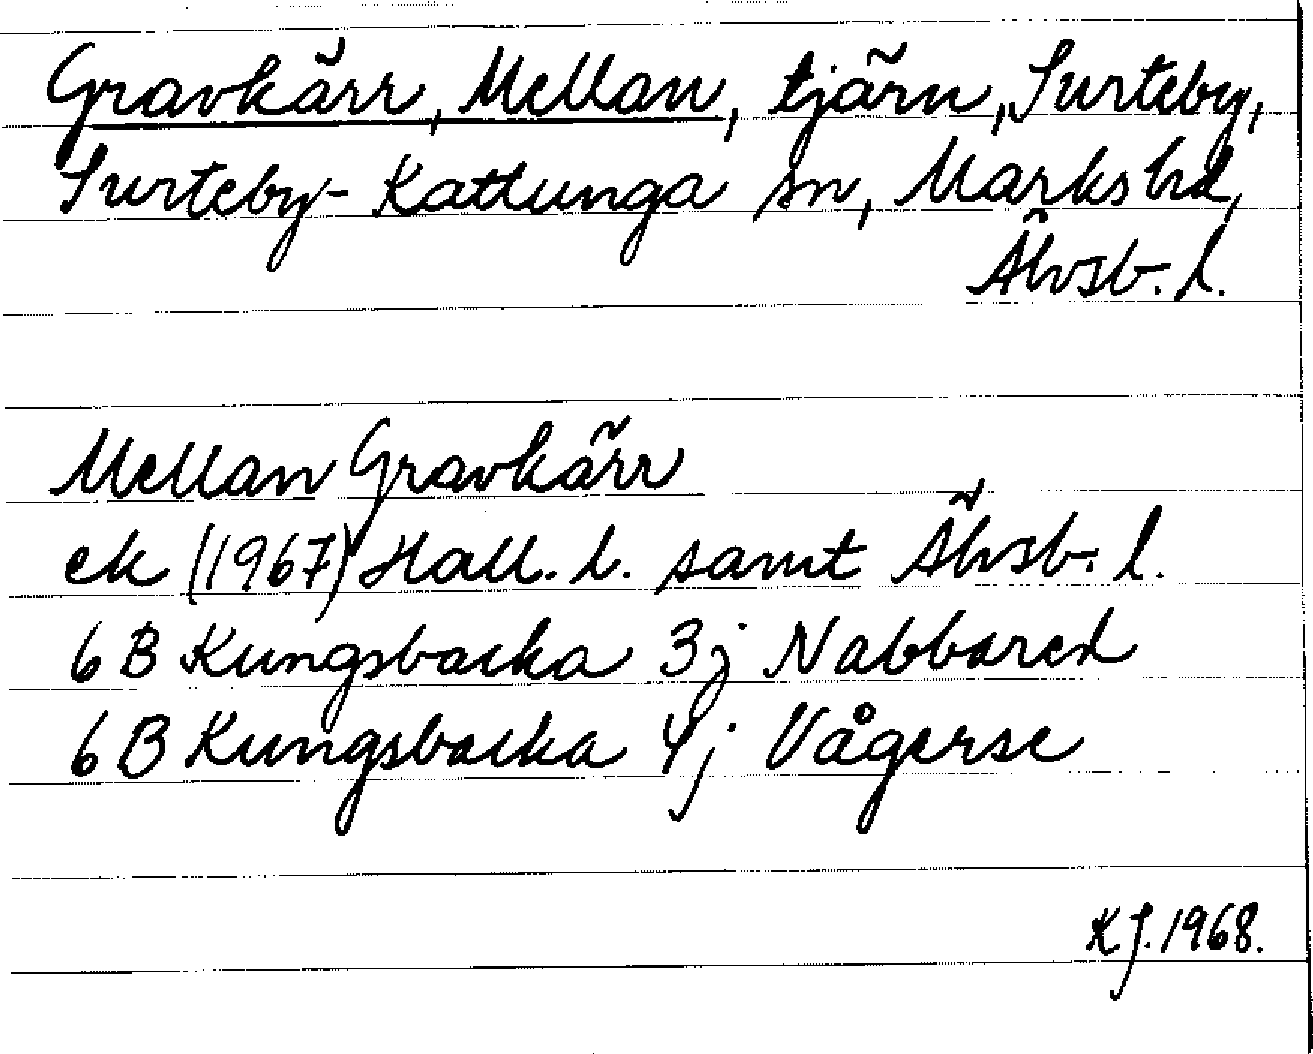 Gravkärr, Mellan, tjärn, Surteby,
Surteby-Kattunga sn, Marks hd,
Älvsb. l.
Mellan Gravkärr
ek (1967) Hall. l. samt Älvsb. l.
6 B Kungsbacka 3j Nabbared
6 B Kungsbacka 4j Vågerse
K J. 1968.